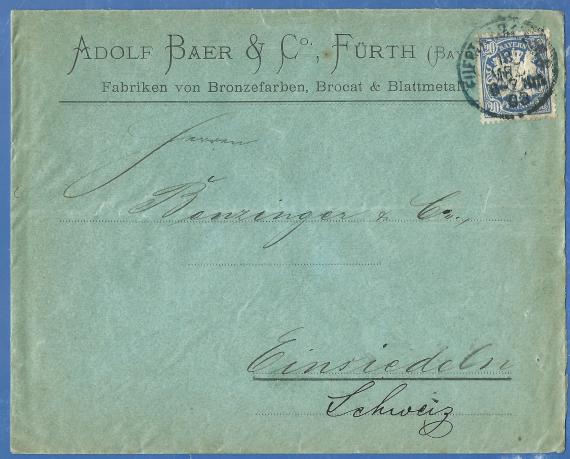 ADOLF BAER & Co., FÜRTH (BAY
Fabriken von Bronzefarben, Brocat & Blattmetall
20 BAYERN
20 20
Herren
Benzinger & Co.,
Einsiedeln
Schweiz